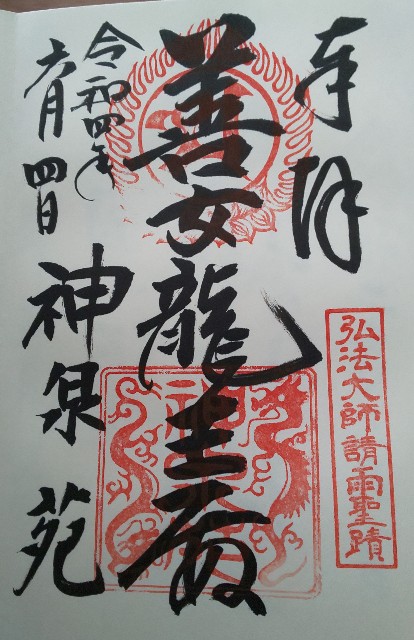 奉拝
弘法大師請雨聖蹟
善女龍王殿
令和四年
六月四日
神泉苑